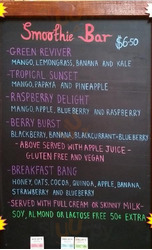 Smoothie Bar
$6.50
-GREEN REVIVER
MANGO, LEMONGRASS, BANANA AND KALE
-TROPICAL SUNSET
MANGO, PAPAYA AND PINEAPPLE
-RASPBERRY DELIGHT
MANGO, APPLE, BLUEBERRY AND RASPBERRY
-BERRY BURST
BLACKBERRY, BANANA, BLACKCURRANT+BLUEBERRY
-ABOVE SERVED WITH APPLE JUICE-
GLUTEN FREE AND VEGAN
-BREAKFAST BANG
HONEY, OATS, COCOA, QUINOA, APPLE, BANANA,
STRAWBERRY AND BLUEBERRY
-SERVED WITH FULL CREAM OR SKINNY MILK-
SOY, ALMOND OR LACTOSE FREE 50¢ EXTRA